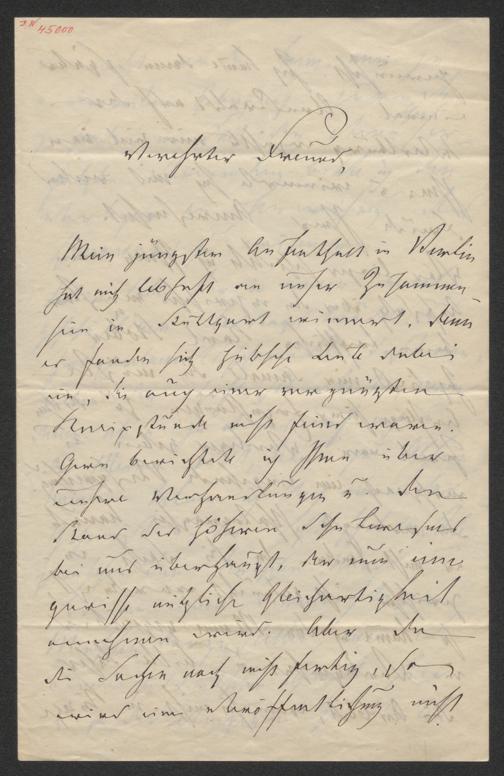 I.N. 45000
Verehrter Freund,
Mein jüngster Aufenthalt in Berlin
hat mich lebhaft an unser Zusammen-
sein in Stuttgart erinnert. Denn
es fanden sich hübsche Leute dabei
ein, die auch einer vergnügten
Kneipstunde nicht feind waren.
Gern berichtete ich Ihnen über
unsere Verhandlungen u den
Stand des höheren Schulwesens
bei uns überhaupt, der nun eine
gewisse mögliche Gleichartigkeit
annehmen wird. Aber da
die Sachen noch nicht fertig, so
wird eine Veröffentlichung nicht